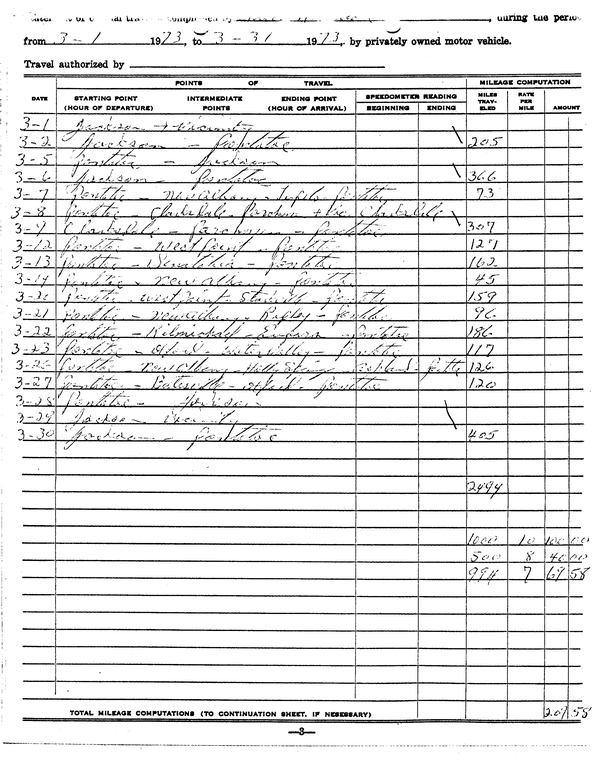 during the perio
from 3-1 1973, to 3-31 1973, by privately owned motor vehicle.
Travel authorized by
POINTS OF TRAVEL MILEAGE COMPUTATION
DATE STARTING POINT (HOUR OF DEPARTURE) INTERMEDIATE POINTS ENDING POINT (HOUR OF ARRIVAL) SPEEDOMETER READING BEGINNING ENDING MILES TRAV-ELED RATE PER MILE AMOUNT
3-1 Jackson + Vicinity
3-2 Jackson - Pontotoc 205
3-5 Pontotoc - Jackson
3-6 Jackson - Pontotoc 366
3-7 Pontotoc - New Albany - Tupelo - Pontotoc 73
3-8 Pontotoc - Clarksdale Parchman + Clarksdale
3-9 Clarksdale - Parchman - Pontotoc 307
3-12 Pontotoc - West Point - Pontotoc 127
3-13 Pontotoc - Senatobia - Pontotoc 162
3-14 Pontotoc - New Albany - Pontotoc 45
3-20 Pontotoc - West Point - Starkville - Pontotoc 159
3-21 Pontotoc - New Albany - Ripley - Pontotoc 96
3-22 Pontotoc - Kilmichael - Eupora - Pontotoc 186
3-23 Pontotoc - Oxford - Water Valley - Pontotoc 117
3-26 Pontotoc - New Albany - Ashland - 126
3-27 Pontotoc - Batesville - Oxford - Pontotoc 120
3-28 Pontotoc - Jackson
3-29 Jackson Vicinity
3-30 Jackson - Pontotoc 405
2494
1000 10 100 00
500 8 40 00
994 7 69 58
TOTAL MILEAGE COMPUTATIONS (TO CONTINUATION SHEET, IF NESESSARY) 209 58
—3—